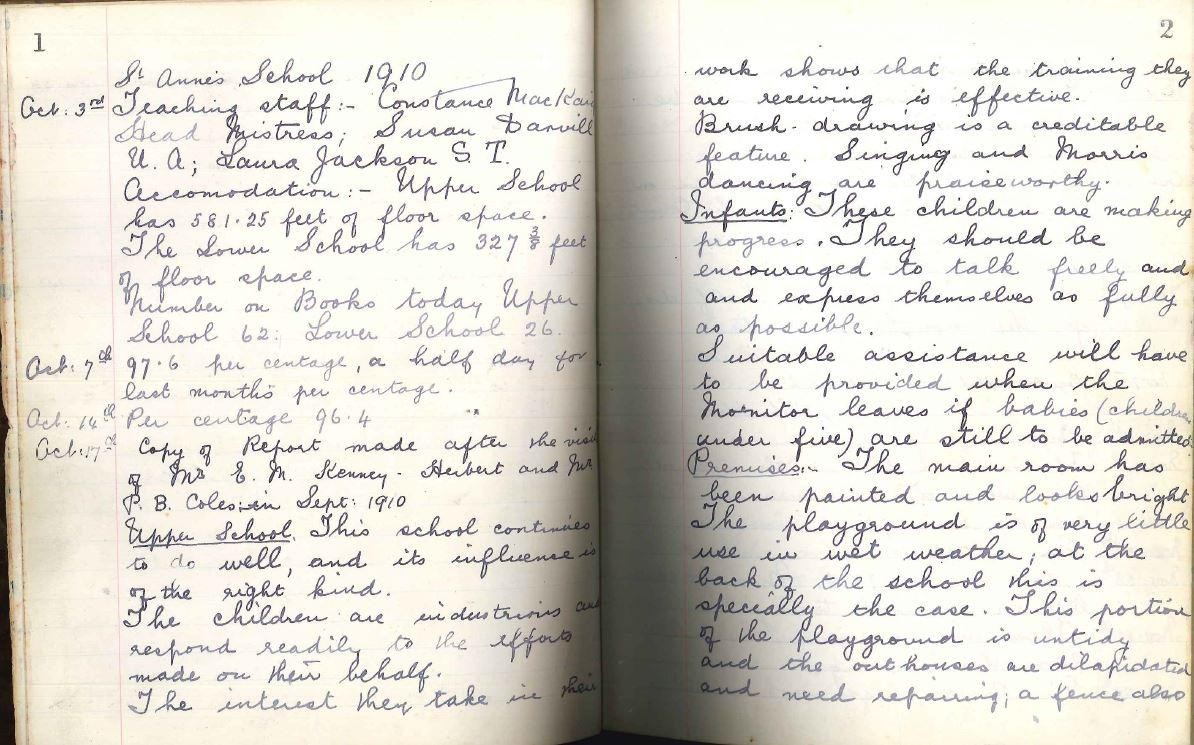 1
St Anne's School 1910
Oct: 3rd Teaching staff:- Constance MacKain
Head Mistress; Susan Darvill
U. A; Laura Jackson S. T.
Accomodation:- Upper School
has 581.25 feet of floor space.
The Lower School has 327 3/8 feet
of floor space.
Number on Books today Upper
School 62: Lower School 26.
Oct: 7th 97.6 per centage, a half day for
last months per centage.
Oct: 14th Per centage 96.4
Oct: 17th Copy of Report made after the visit
of Mr E. M. Kenney-Herbert and Mr
P. B. Coles; in Sept: 1910
Upper School. This school continues
to do well, and its influence is
of the right kind.
The children are industrious and
respond readily to the efforts
made on their behalf.
The interest they take in their
2
work shows that the training they
are receiving is effective.
Brush-drawing is a creditable
feature. Singing and Morris
dancing are praiseworthy.
Infants: These children are making
progress. They should be
encouraged to talk freely and
and express themselves as fully
as possible.
Suitable assistance will have
to be provided when the
Monitor leaves if babies (children
under five) are still to be admitted.
Premises:- The main room has
been painted and looks bright
The playground is of very little
use in wet weather; at the
back of the school this is
specially the case. This portion
of the playground is untidy
and the outhouses are dilapidated
and need repairing; a fence also